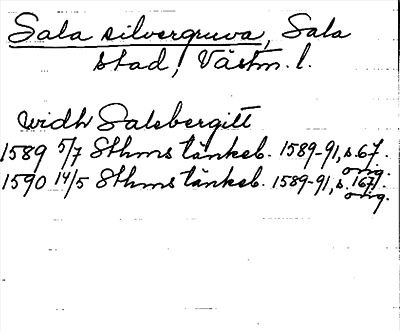 Sala silvergruva, Sala
stad, Västm. l.
widh Salsbergitt
1589 5/7 Sthms tänkeb. 1589-91, s. 67.
orig.
1590 14/5 Sthms tänkeb. 1589-91, s. 167.
orig.